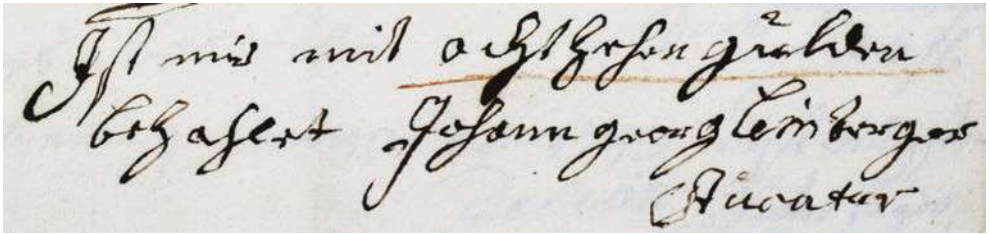 Ist mir mit achtzehen gulden
bezahlet Johann georg leinberger
Stucator